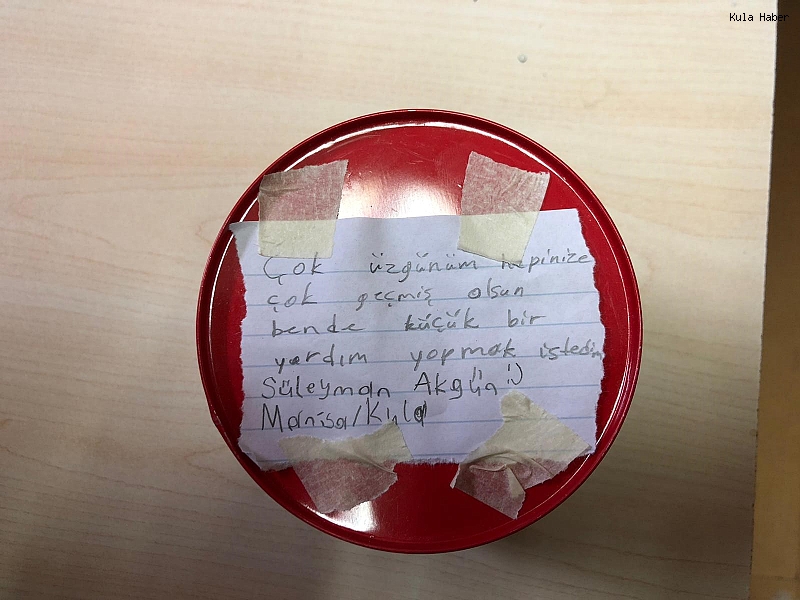 Kula Haber
Çok üzgünüm hepinize
çok geçmiş olsun
bende küçük bir
yardım yapmak istedim
Süleyman Akgün :)
Manisa/Kula